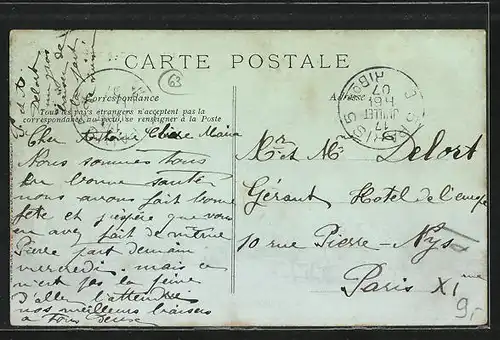 CARTE POSTALE
63
Correspondance
Tous les pays étrangers n'acceptent pas la
correspondance au recto, se renseigner à la Poste
Adresse
Cher Chère Maria
Nous sommes tous
en bonne santé
nous avons fait bonne
fête et j'espère que vous
en avez fait de même
Pierre part demain
mercredi mais ce
n'est pas la peine
d'aller l'attendre
nos meilleurs baisers
à tous deux
Mr et Me Delort
Gérant Hotel de l'europe
10 rue Pierre-Nys
Paris XIme
9,-